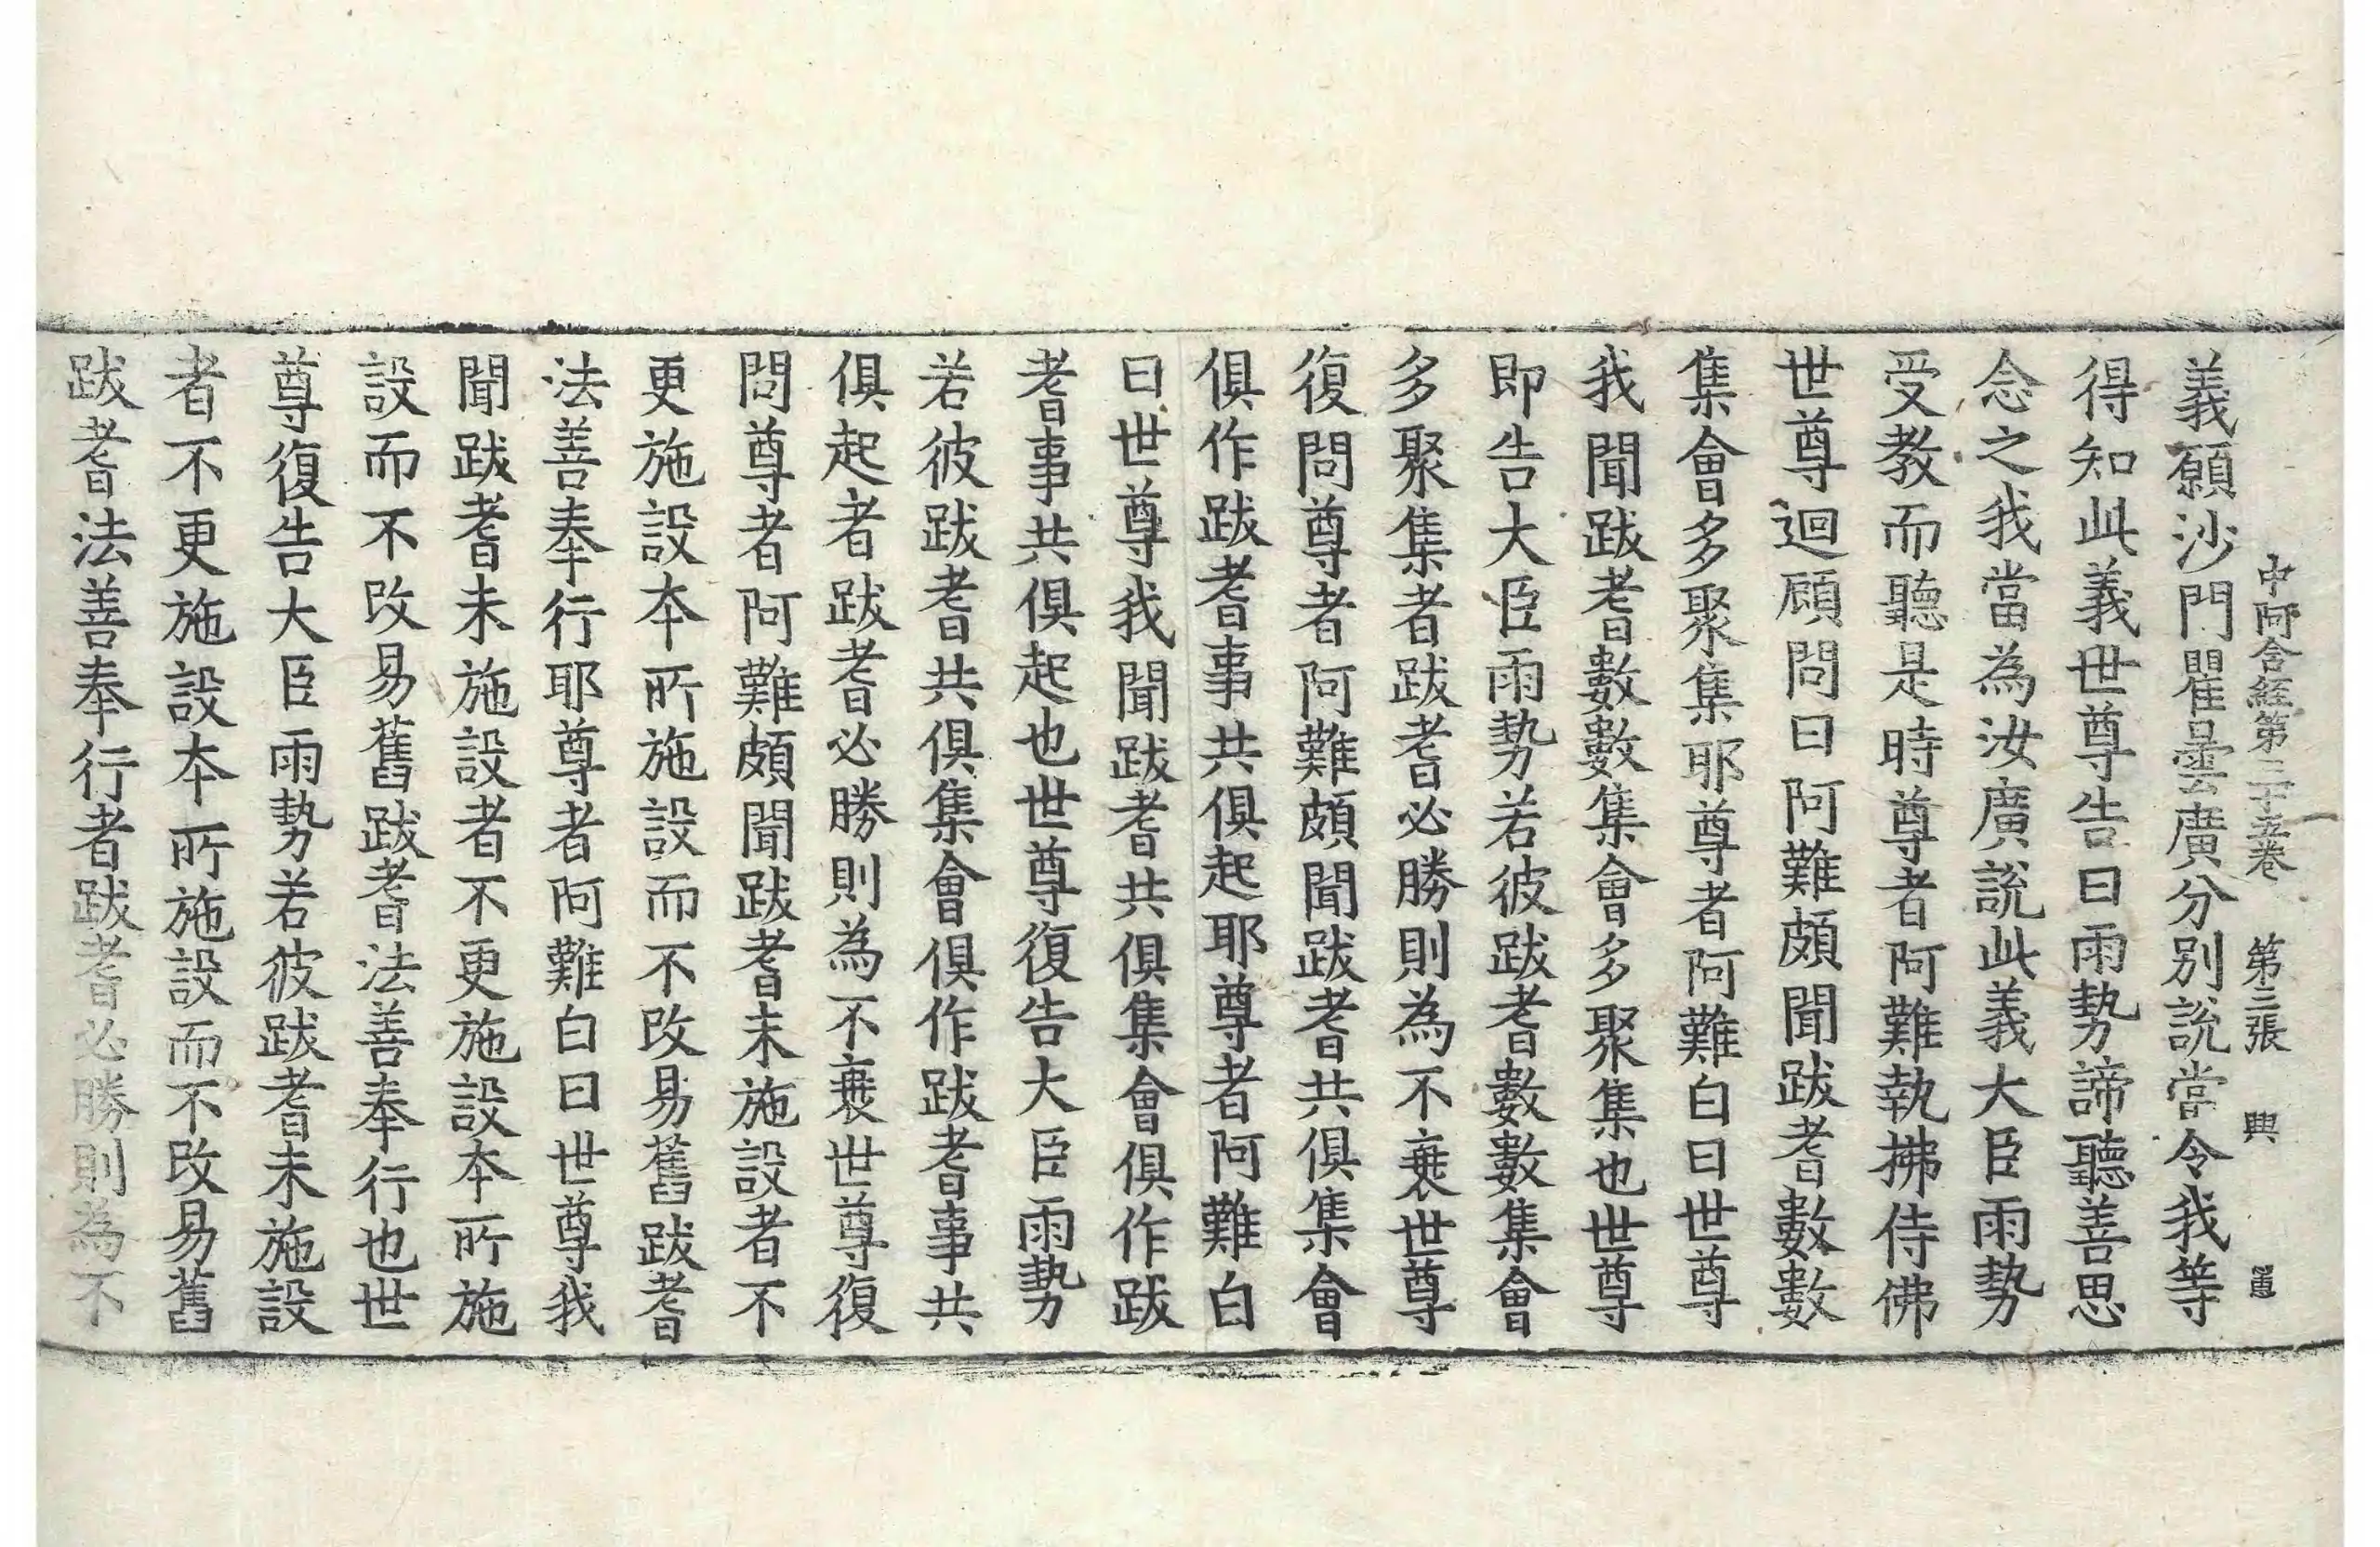 中阿含經第三十五卷 第三張 興
義願沙門瞿曇廣分別說當令我等
得知此義世尊告曰雨勢諦聽善思
念之我當為汝廣說此義大臣雨勢
受教而聽是時尊者阿難執拂侍佛
世尊迴顧問曰阿難頗聞跋耆數數
集會多聚集耶尊者阿難白曰世尊
我聞跋耆數數集會多聚集也世尊
即告大臣雨勢若彼跋耆數數集會
多聚集者跋耆必勝則為不衰世尊
復問尊者阿難頗聞跋耆共俱集會
俱作跋耆事共俱起耶尊者阿難白
曰世尊我聞跋耆共俱集會俱作跋
耆事共俱起也世尊復告大臣雨勢
若彼跋耆共俱集會俱作跋耆事共
俱起者跋耆必勝則為不衰世尊復
問尊者阿難頗聞跋耆未施設者不
更施設本所施設而不改易舊跋耆
法善奉行耶尊者阿難白曰世尊我
聞跋耆未施設者不更施設本所施
設而不改易舊跋耆法善奉行也世
尊復告大臣雨勢若彼跋耆未施設
者不更施設本所施設而不改易舊
跋耆法善奉行者跋耆必勝則為不